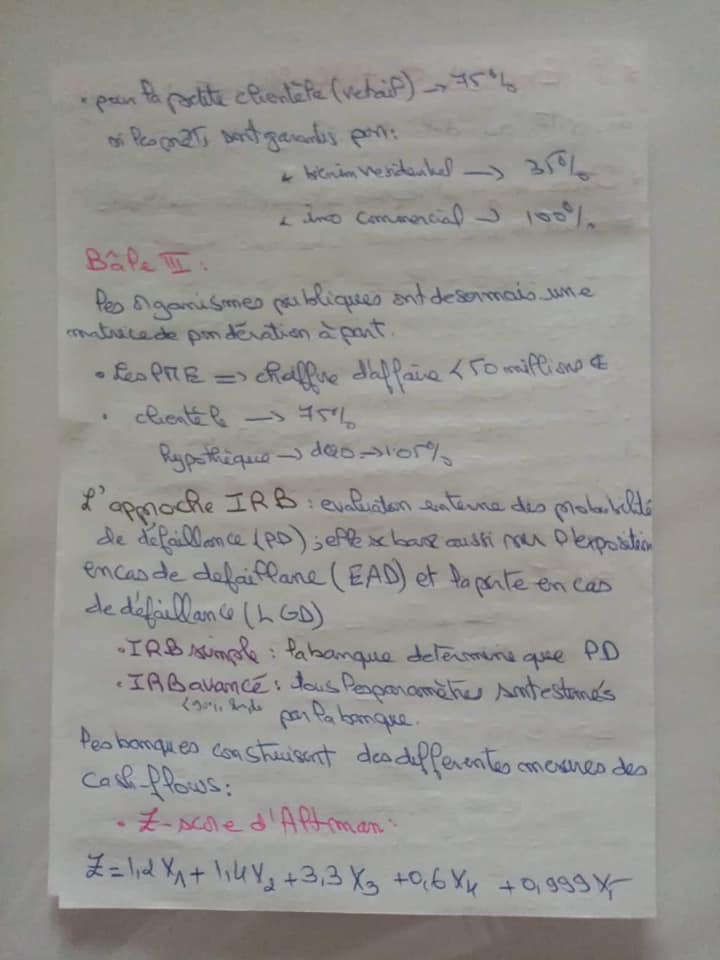 • pour la petite clientèle (retail) → 75%
si les prêts sont garantis par:
* bien im residentiel → 35%
* imo commercial → 100%
Bâle III :
les organismes publiques ont desormais une
matrice de pondération à part.
• Les PME => chaffre d'affaire < 50 millions €
• clientèle → 75%
hypothèque → de 20 → 105%
L'approche IRB : evaluation interne des probabilité
de défaillance (PD) ; elle se base aussi sur l'exposition
en cas de defaillane (EAD) et la perte en cas
de défaillance (LGD)
• IRB simple : la banque determine que PD
• IRB avancé : tous les paramètres sont estimés
par la banque.
les banques construisent des differentes mesures des
cash-flows :
• Z-score d'Altman :
Z = 1,2 X1 + 1,4 X2 + 3,3 X3 + 0,6 X4 + 0,999 X5